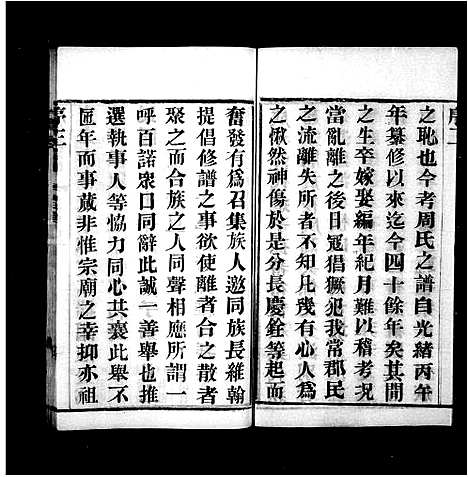 之恥也今考周氏之譜自光緒丙午
年纂修以來迄今四十餘年矣其間
之生卒嫁娶編年紀月難以稽考况
當亂離之後日冠猖獗犯我常郡民
之流離失所者不知凡幾有心人爲
之愀然神傷於是分長慶銓等起而
奮發有爲召集族人邀同族長維翰
提倡修譜之事欲使離者合之散者
聚之而合族之人同聲相應所謂一
呼百諾衆口同辭此誠一善舉也推
選執事人等恊力同心共襄此舉不
匝年而事蕆非惟宗廟之幸抑亦祖
序三